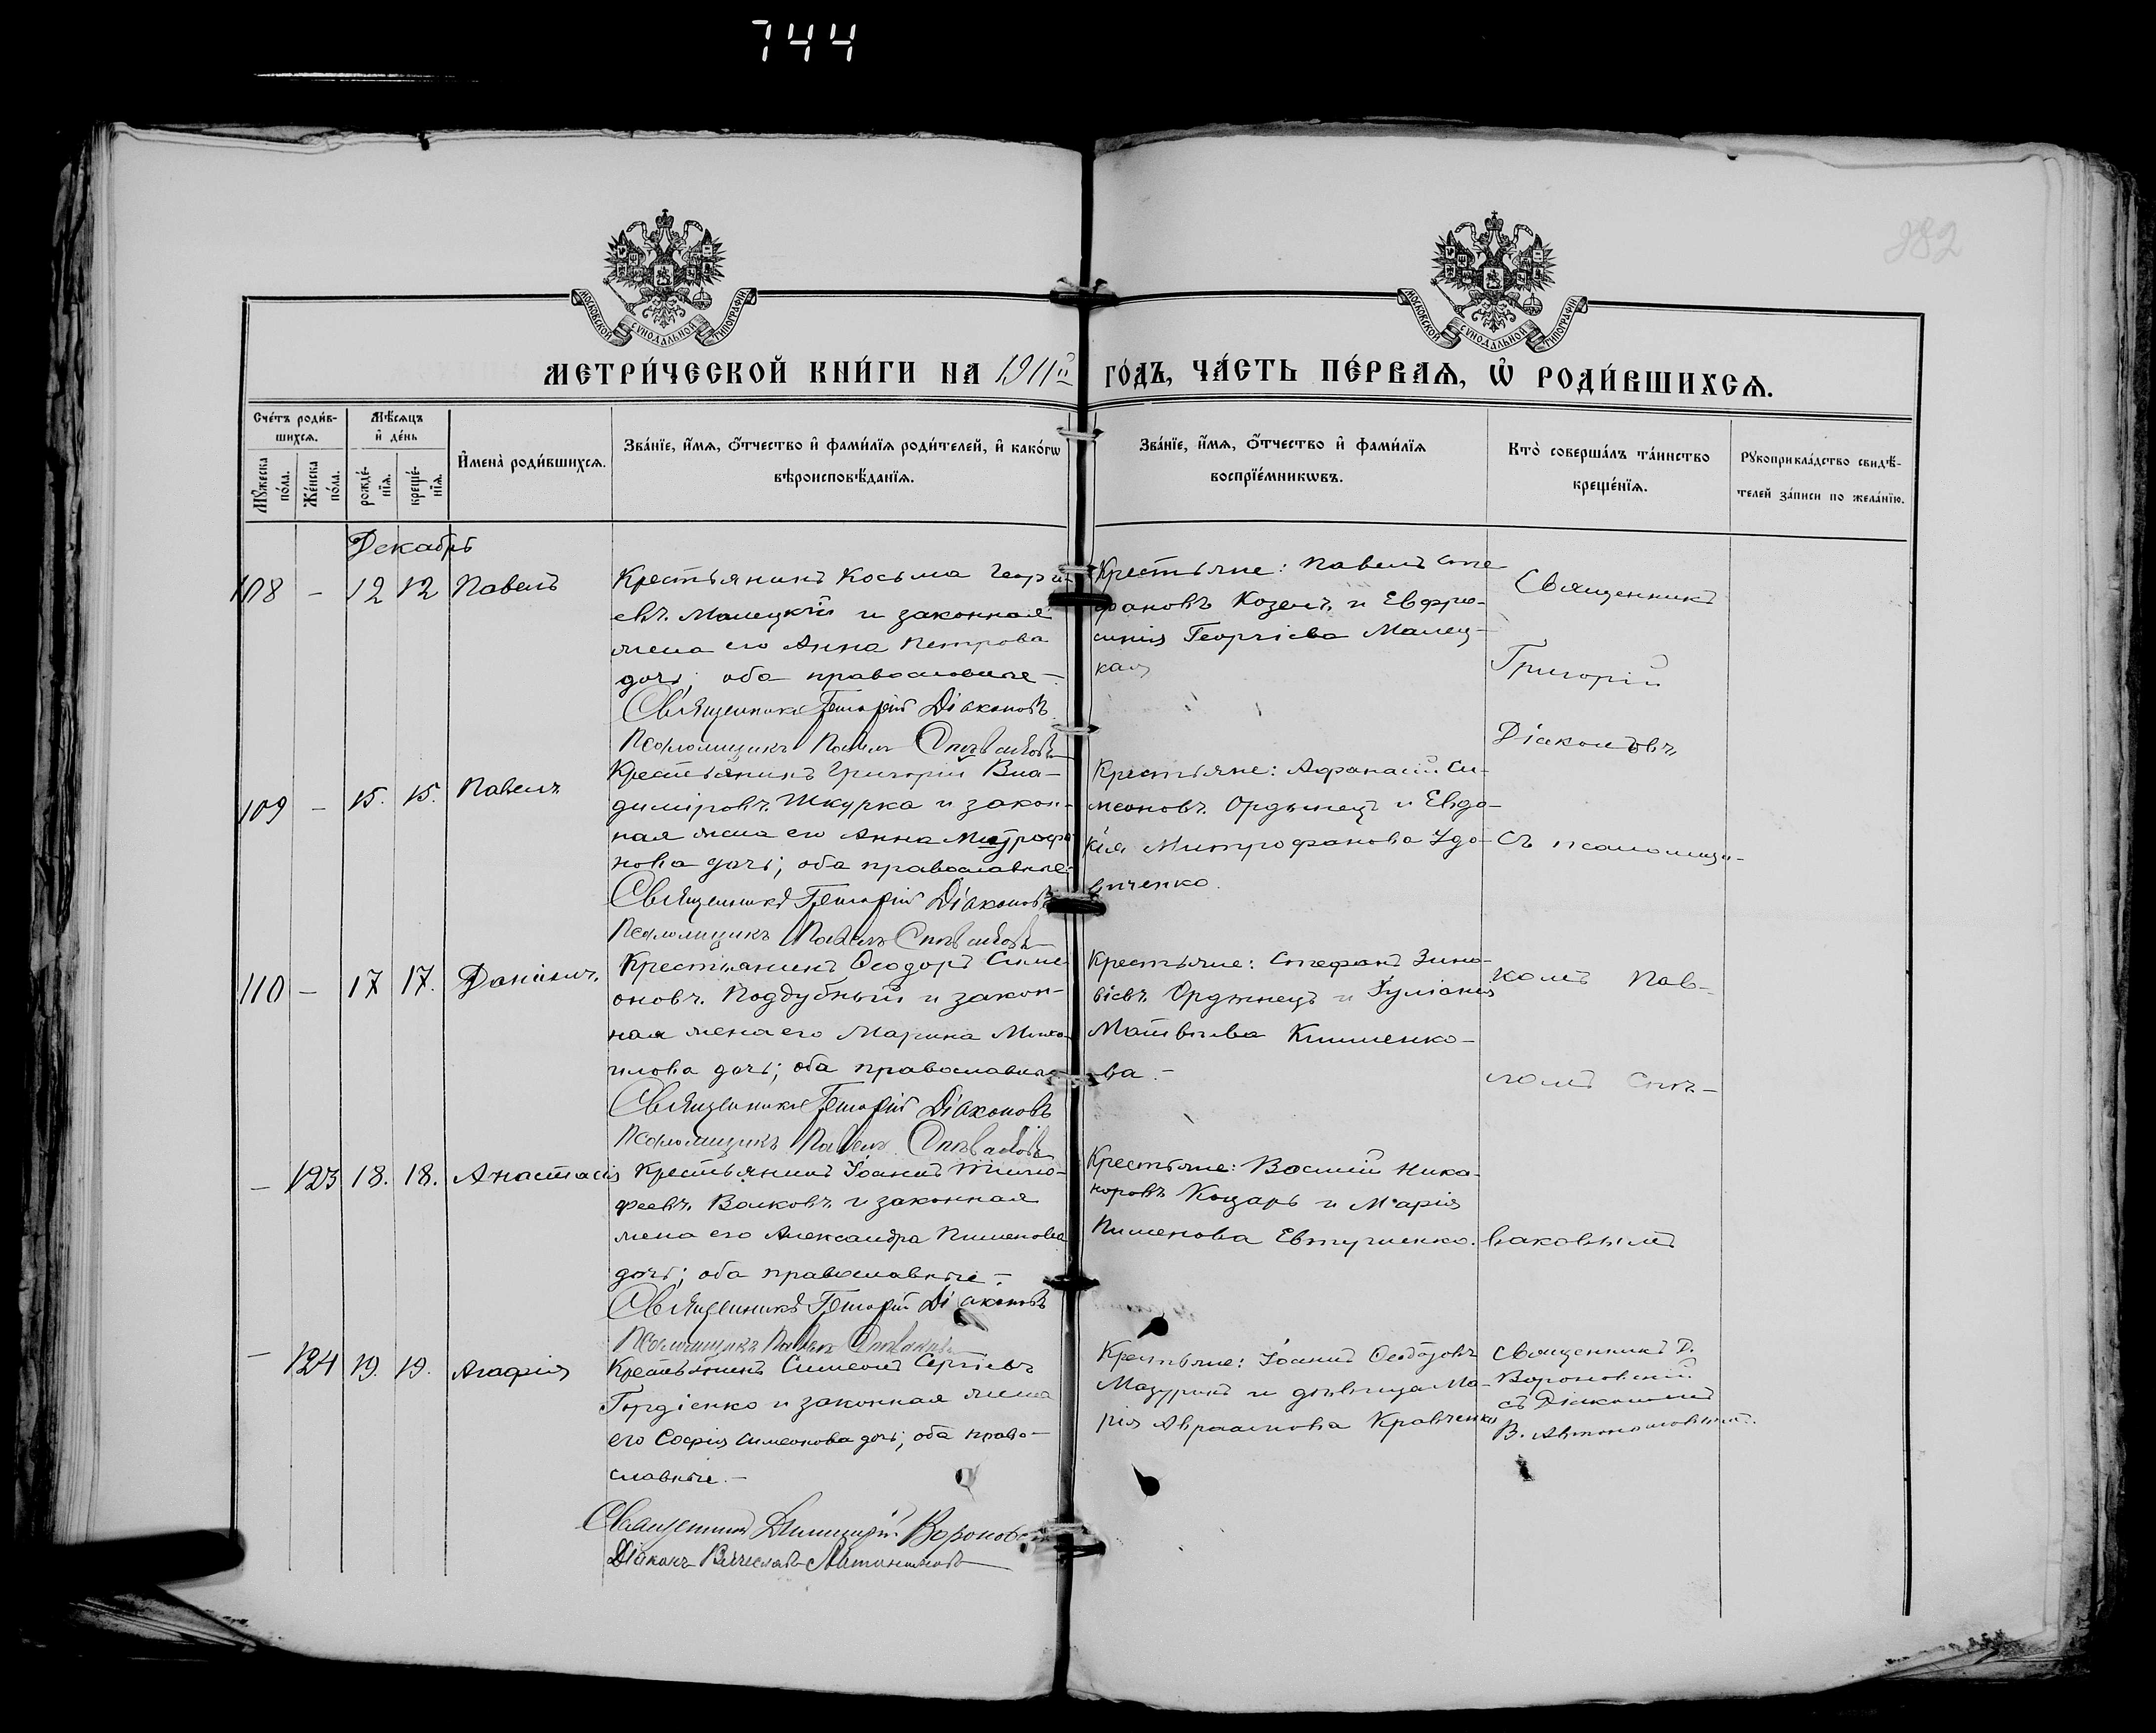 744
382
МОСКОВСКОЙ СѴНОДАЛЬНОЙ ТИПОГРАФІИ
МОСКОВСКОЙ СѴНОДАЛЬНОЙ ТИПОГРАФІИ
МЕТРИ́ЧЕСКОЙ КНИ́ГИ НА 1911й ГО́ДЪ, ЧА́СТЬ ПЕ́РВАѦ, Ѡ҆ РОДИ́ВШИХСѦ.
Сче́тъ роди́в-
шихсѧ.
Мꙋ́жеска по́ла.
Же́нска по́ла.
Мѣ́сѧцъ
и҆ де́нь
рожде́-
нїѧ.
креще́-
нїѧ.
И҆мена̀ роди́вшихсѧ.
Зва́нїе, и҆́мѧ, ѻ҆́тчество и҆ фами́лїѧ роди́телей, и҆ како́гѡ
вѣроисповѣ́данїѧ.
Зва́нїе, и҆́мѧ, ѻ҆́тчество и҆ фами́лїѧ
воспрїе́мникѡвъ.
Кто̀ соверша́лъ та́инство
креще́нїѧ.
Рꙋкоприкла́дство свидѣ́-
телей за́писи по жела́нїю.
Декабрь
108 – 12 12 Павелъ
Крестьянинъ Косьма Георгі-
евъ Малецкій и законная
жена его Анна Петрова
дочь; оба православные –
Священникъ Григорій Діаконовъ
Псаломщикъ Павелъ Спѣваковъ
Крестьяне: Павелъ Сте-
фановъ Козелъ и Евфро-
синія Георгіева Малец-
кая
Священникъ
Григорій
Діаконовъ
109 – 15. 15. Павелъ
Крестьянинъ Григорій Вла-
диміровъ Шкурка и закон-
ная жена его Анна Митрофа
нова дочь; оба православные
Священникъ Григорій Діаконовъ
Псаломщикъ Павелъ Спѣваковъ
Крестьяне: Афанасій Си-
меоновъ Ордынецъ и Евдо-
кія Митрофанова Удо-
виченко.
съ псаломщи-
110 – 17 17. Даніилъ
Крестьянинъ Ѳеодоръ Симе
оновъ Поддубный и закон-
ная жена его Марина
дочь; оба православные
Священникъ Григорій Діаконовъ
Псаломщикъ Павелъ Спѣваковъ
Крестьяне: Стефанъ Зино-
віевъ Ордынецъ и Іуліанія
Матвѣева Клименко-
ва. –
комъ Пав-
ломъ Спѣ-
– 123 18. 18. Анастасія
Крестьянинъ Іоаннъ Тимо-
феевъ Волковъ и законная
жена его Александра Пименова
дочь; оба православные –
Священникъ Григорій Діаконовъ
Псаломщикъ Павелъ Спѣваковъ
Крестьяне: Василій Ника-
норовъ Коцарь и Марія
Пименова Евтушенко.
ваковымъ
– 124 19. 19. Агафія
Крестьянинъ Симеонъ Сергіевъ
Гордіенко и законная жена
его Софія Симеонова дочь; оба право-
славные. –
Священникъ Димитрій Вороновскій
Діаконъ Вячеславъ Автономовъ
Крестьяне: Іоаннъ Ѳеодоровъ
Мазуринъ и дѣвица Ма-
рія Авраамова Кравченко
Священникъ Д.
Вороновскій
съ Діакономъ
В. Автономовымъ.